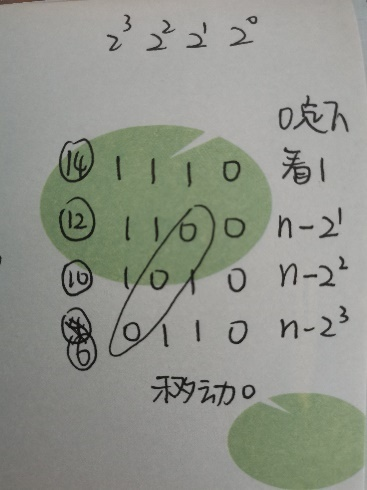 2³ 2² 2¹ 2⁰
0定下
⑭ 1 1 1 0 看1
⑫ 1 1 0 0 n-2¹
⑩ 1 0 1 0 n-2²
⑥ 0 1 1 0 n-2³
移动0